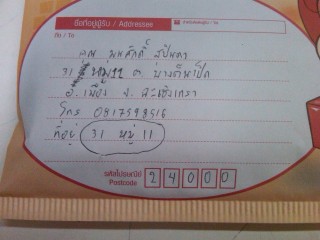 ชื่อที่อยู่ผู้รับ / Addressee
ถึง / To
คุณ
31 หมู่ 11 ต. บางตีนเป็ด
อ. เมือง จ. ฉะเชิงเทรา
โทร 0817598516
ที่อยู่ 31 หมู่ 11
รหัสไปรษณีย์
Postcode
24000